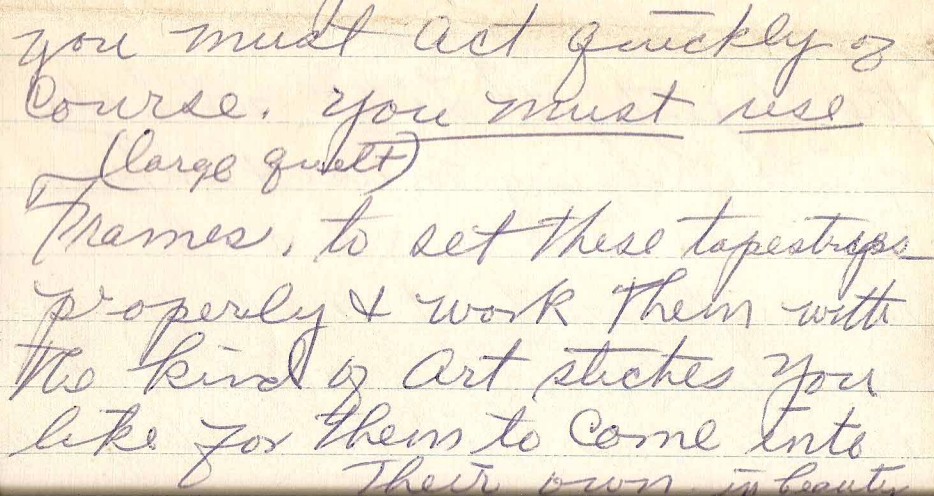 you must act quickly of
Course. you must use
(large quilt)
Frames, to set these tapestrys
properly & work them with
the kind of Art stiches you
like for them to Come into
Their own in beauty